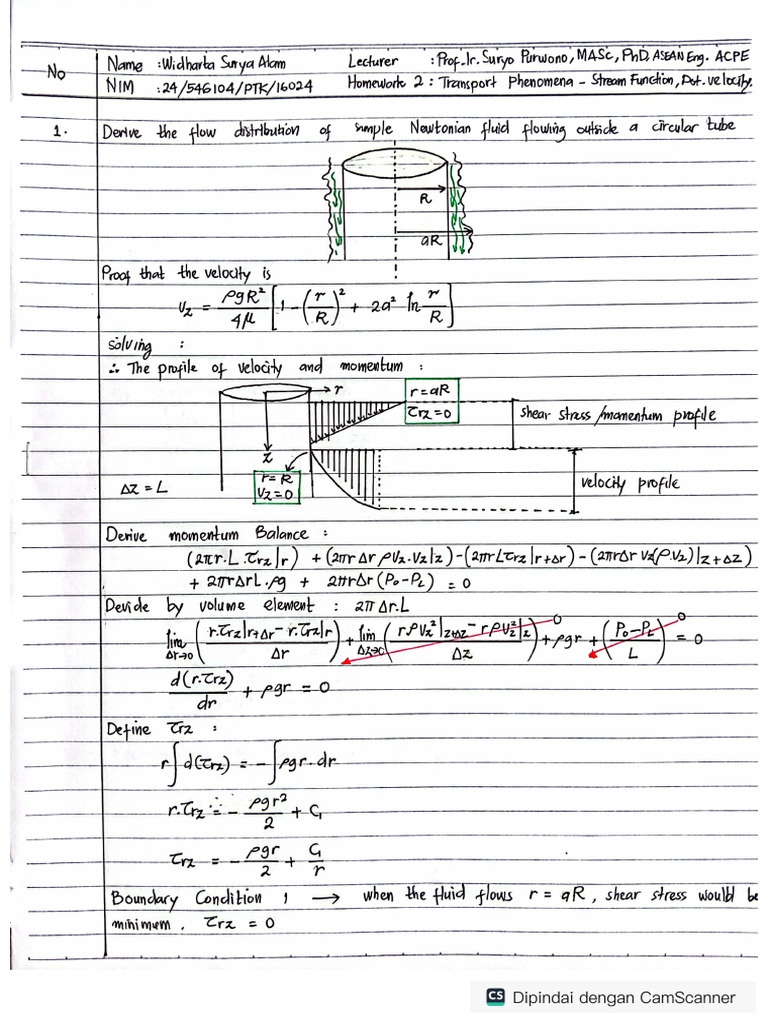 No
Name : Widharta Surya Alam
Lecturer : Prof. Ir. Suryo Purwono, MASc, PhD, ASEAN Eng. ACPE
NIM : 24/546104/PTK/16024
Homework 2 : Transport Phenomena - Stream Function, Pot. velocity.
1. Derive the flow distribution of simple Newtonian fluid flowing outside a circular tube
R
aR
Proof that the velocity is
υz = ρgR²/4μ [1 - (r/R)² + 2a² ln r/R]
solving :
∴ The profile of velocity and momentum :
r
r = aR
τrz = 0
shear stress/momentum profile
z
r = R
Vz = 0
ΔZ = L
velocity profile
Derive momentum Balance :
(2πr.L.τrz|r) + (2πrΔr ρVz.Vz|z) - (2πrLτrz|r+Δr) - (2πrΔr Vz(ρ.Vz)|z+Δz)
+ 2πrΔrL.ρg + 2πrΔr(P₀-P_L) = 0
Devide by volume element : 2πΔr.L
lim Δr→0 (r.τrz|r+Δr - r.τrz|r / Δr) + lim Δz→0 (rρVz²|z+Δz - rρVz²|z / Δz) 0 + ρgr + (P₀-P_L / L) 0 = 0
d(r.τrz)/dr + ρgr = 0
Define τrz :
r∫d(τrz) = -∫ρgr.dr
r.τrz = - ρgr²/2 + C₁
τrz = - ρgr/2 + C₁/r
Boundary Condition 1 → when the fluid flows r = aR, shear stress would be
minimum. τrz = 0
CS Dipindai dengan CamScanner